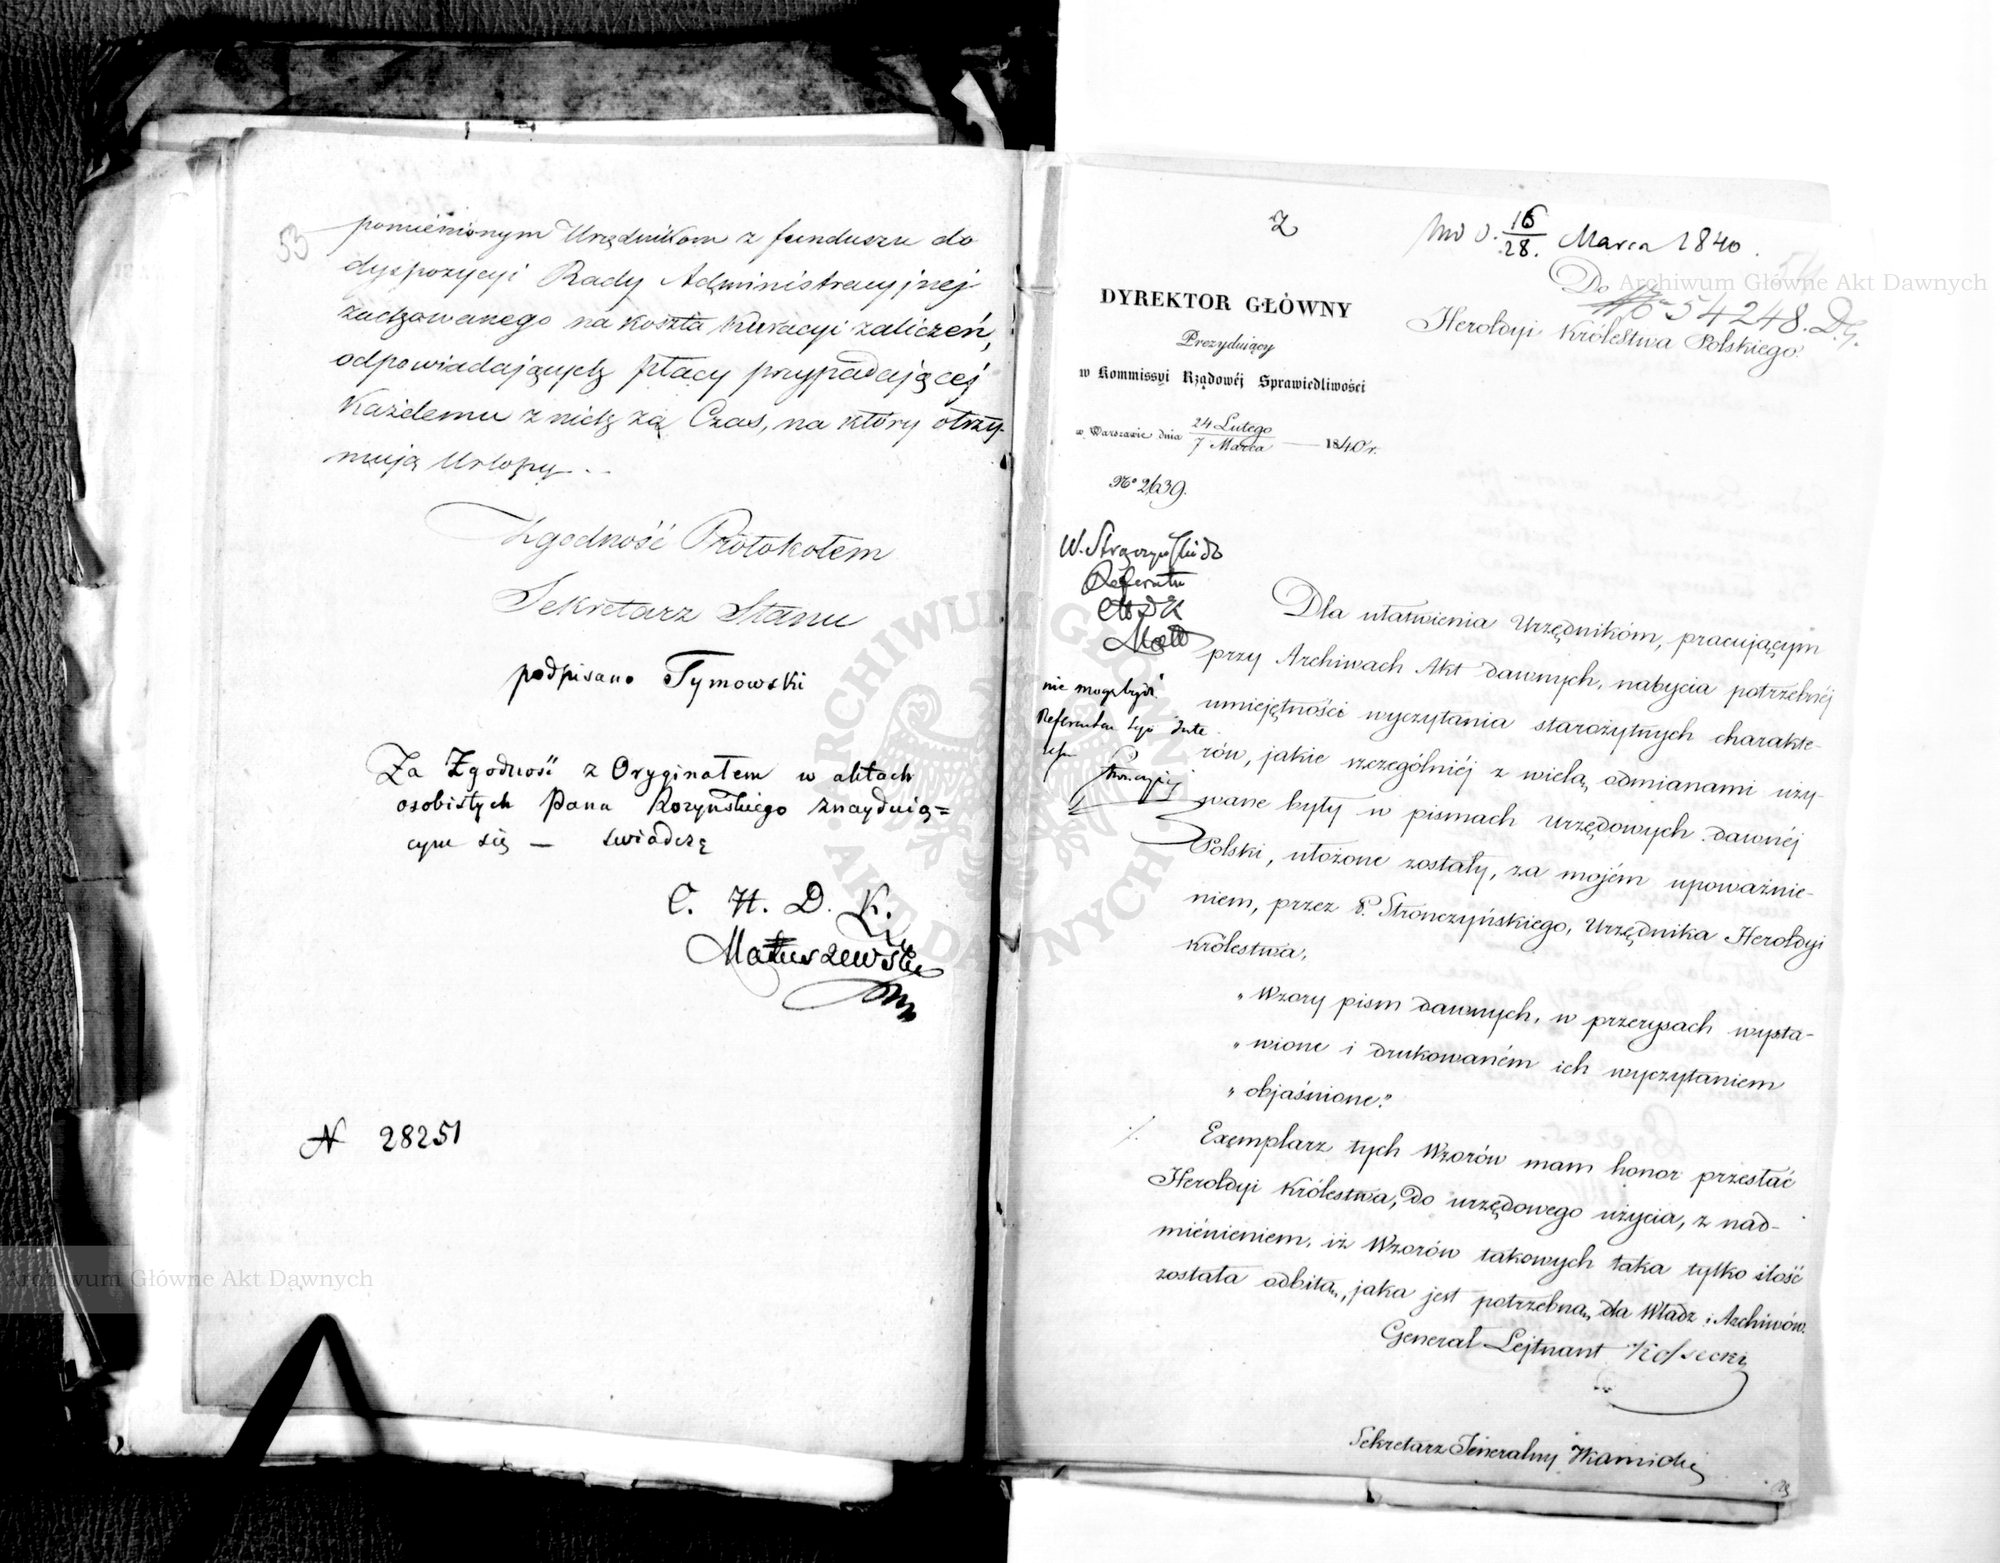 53
pomienionym Urzędnikom z funduszu do
dyspozycyi Rady Administracyjnej
zachowanego na koszta kuracyi zaliczeń,
odpowiadających płacy przypadającej
każdemu z nich za Czas, na który otrzy-
mują Urlopy
Zgodność Protokołem
Sekretarz Stanu
podpisano Tymowski
Za Zgodność z Oryginałem w aktach
osobistych Pana Rozyńskiego znayduią=
cym się — świadczę
C. H. D. K.
Matuszewski
N 28251
2
16/28. Marca 1840.
Do
54248.
Heroldyi Królestwa Polskiego
DYREKTOR GŁÓWNY
Prezydujący
w Kommissyi Rządowéj Sprawiedliwości
w Warszawie dnia 24 Lutego / 7 Marca 1840 r.
No 2639.
Referatu
nie mogą być
Dla ułatwienia Urzędnikóm, pracującym
przy Archiwach Akt dawnych, nabycia potrzebnéj
umiejętności wyczytania starożytnych charakte-
rów, jakie szczególniéj z wielą odmianami uży-
wane były w pismach urzędowych dawnéj
Polski, ułożone zostały, za mojém upoważnie-
niem, przez P. Stronczyńskiego, Urzędnika Heroldyi
Królestwa,
„Wzory pism dawnych, w przerysach wysta-
„wione i drukowaném ich wyczytaniem
„objaśnione."
Exemplarz tych Wzorów mam honor przesłać
Heroldyi Królestwa, do urzędowego użycia, z nad-
mienieniem, iż Wzorów takowych taka tylko ilość
została odbitą, jaka jest potrzebną dla Władz i Archiwów.
Generał Lejtnant Kossecki
Sekretarz Jeneralny
Archiwum Główne Akt Dawnych
Archiwum Główne Akt Dawnych
ARCHIWUM GŁÓWNE AKT DAWNYCH